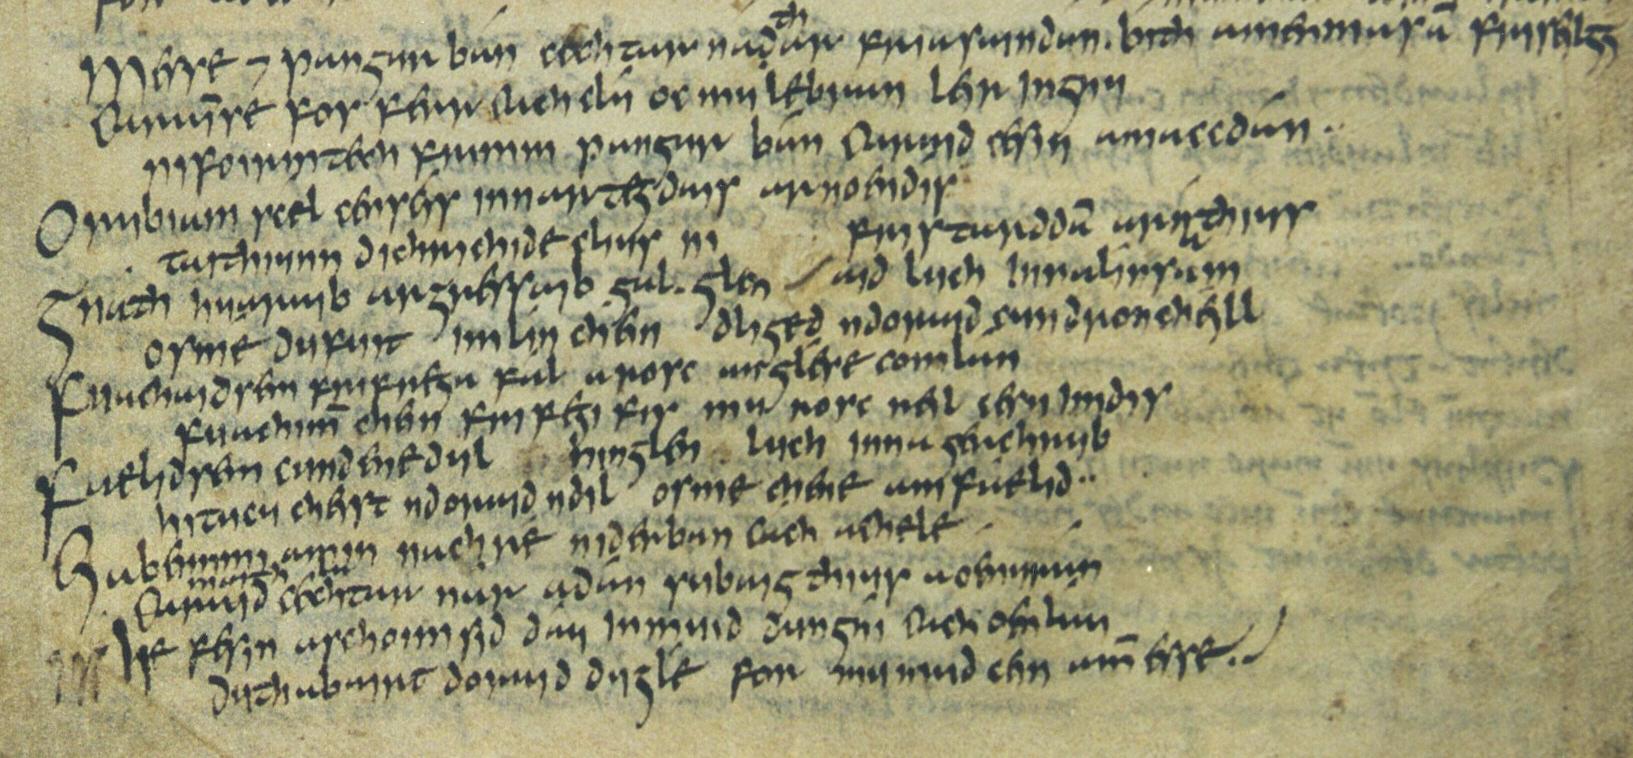 Messe ⁊ pangur bán cechtar nathar fria saindan bith a menma sam fri seilgg
mu menma céin im sain ceirdd
Caraimse fos ferr cach clú oc mu lebran leir ingnu
ni foirmtech frimm pangur bán caraid cesin a maccdán
Orubiam scél cen scís innar tegdais ar noendís
táithiunn dichrichide clius ni fris tarddam ar náthius
Gnáth huaraib ar gressaib gal glen aid luch inna línsam
os me du fuit im lín chéin dliged ndoraid cu ndronchéill
Fuachaidsem fri frega fál a rosc anglése comlán
fuachimm chein fri fégi fis mu rosc réil cesu imdis
Faelidsem cu ndene dul hinglen luch inna gerchrub
hi tucu cheist ndoraid ndil os me chene am faelid
Cia beimmi amin nach ré ni derban cách a chele
maith la cechtar nár a dán subaigthius a oenurán
he fesin as choimsid dáu in muid du ngni cach oenláu
du thabairt doraid du glé for mu mud cein am messe